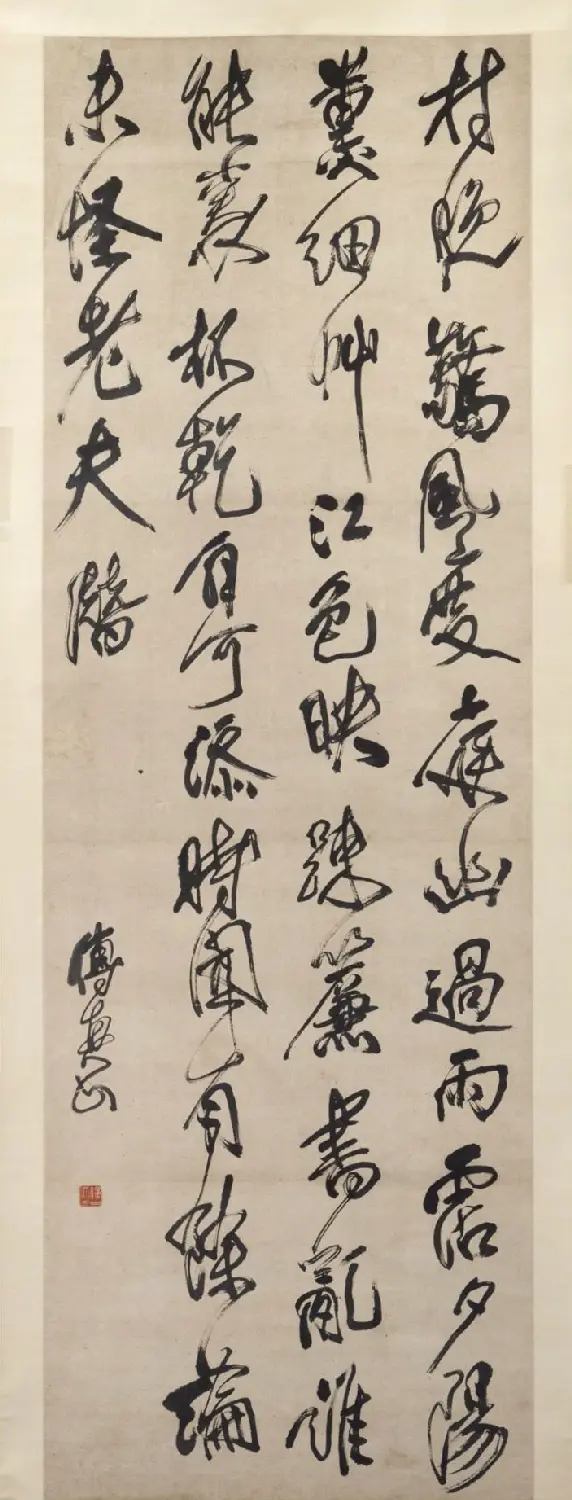 村晚驚風度庭幽過雨霑夕陽
薰細艸江色映疎簾書亂誰
能袠杯乾自可添時聞有餘論
未怪老夫潛
傅真山